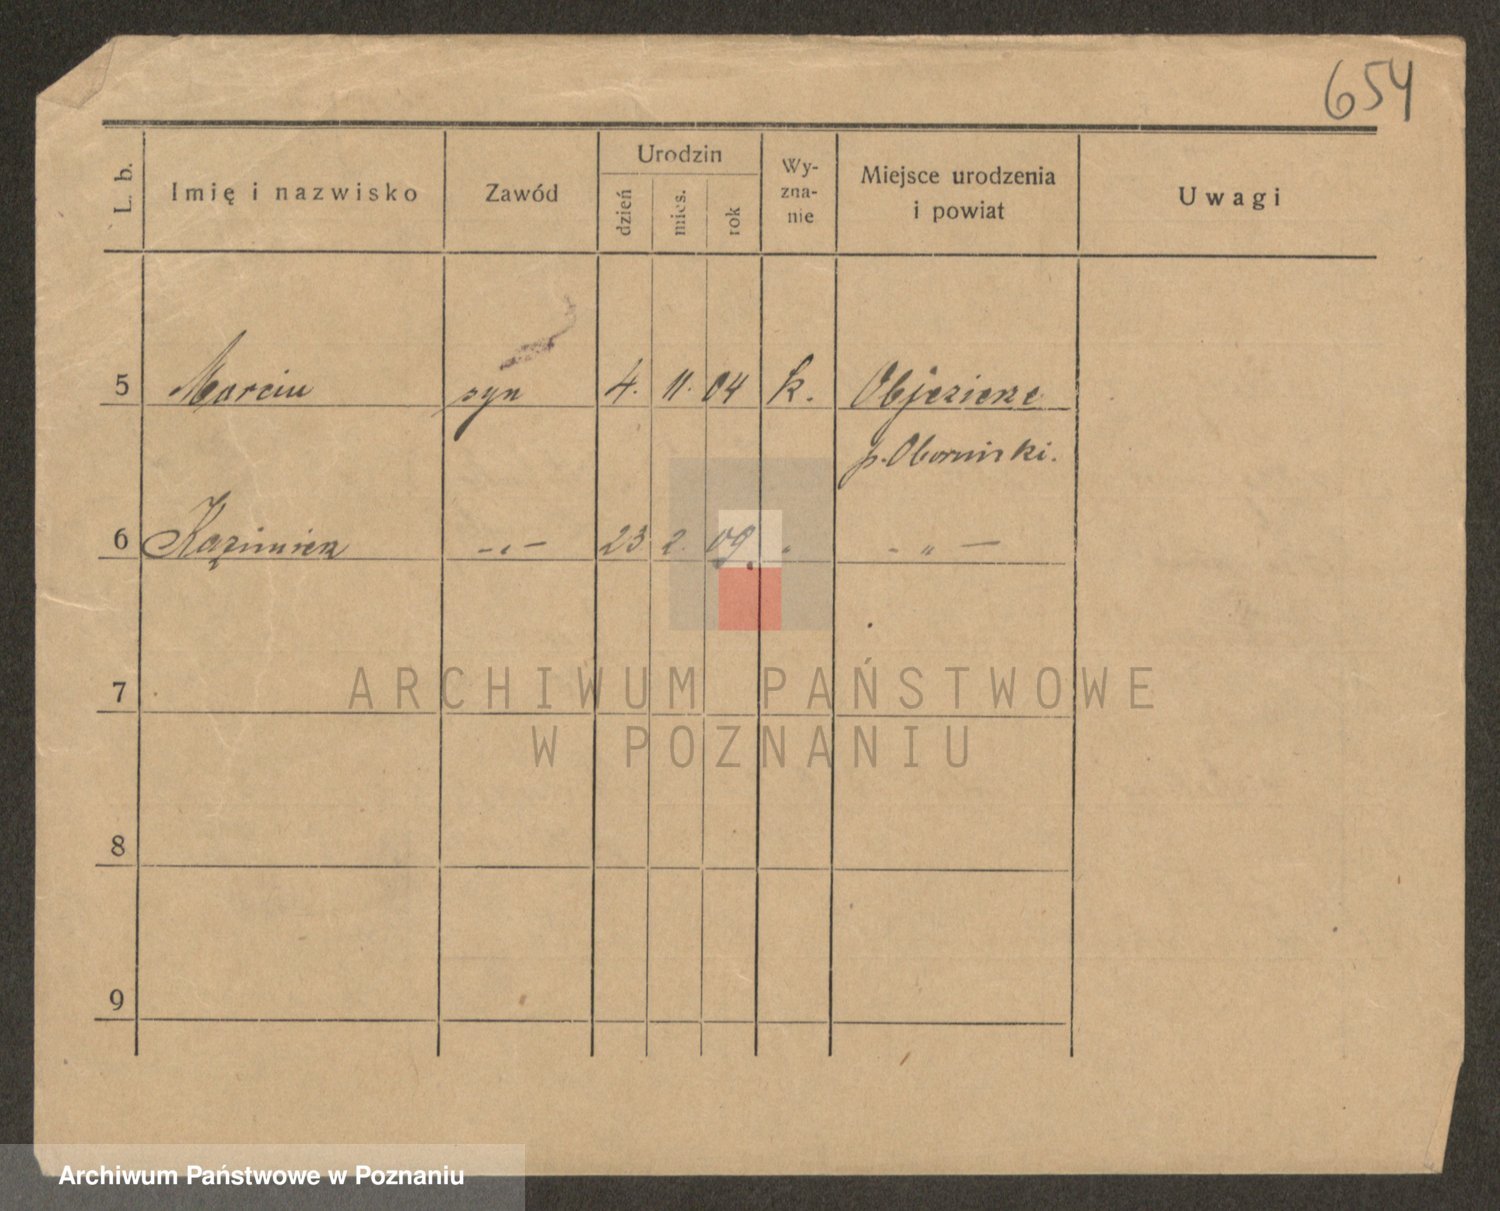 654
L. b. Imię i nazwisko Zawód Urodzin Wy-zna-nie Miejsce urodzenia i powiat Uwagi
dzień mies. rok
5 Marcin syn 4. 11. 04 k. Objezierze
p. Obornicki.
6 Kazimierz -„- 23 2. 09. „ -„-
7
ARCHIWUM PAŃSTWOWE
W POZNANIU
8
9
Archiwum Państwowe w Poznaniu